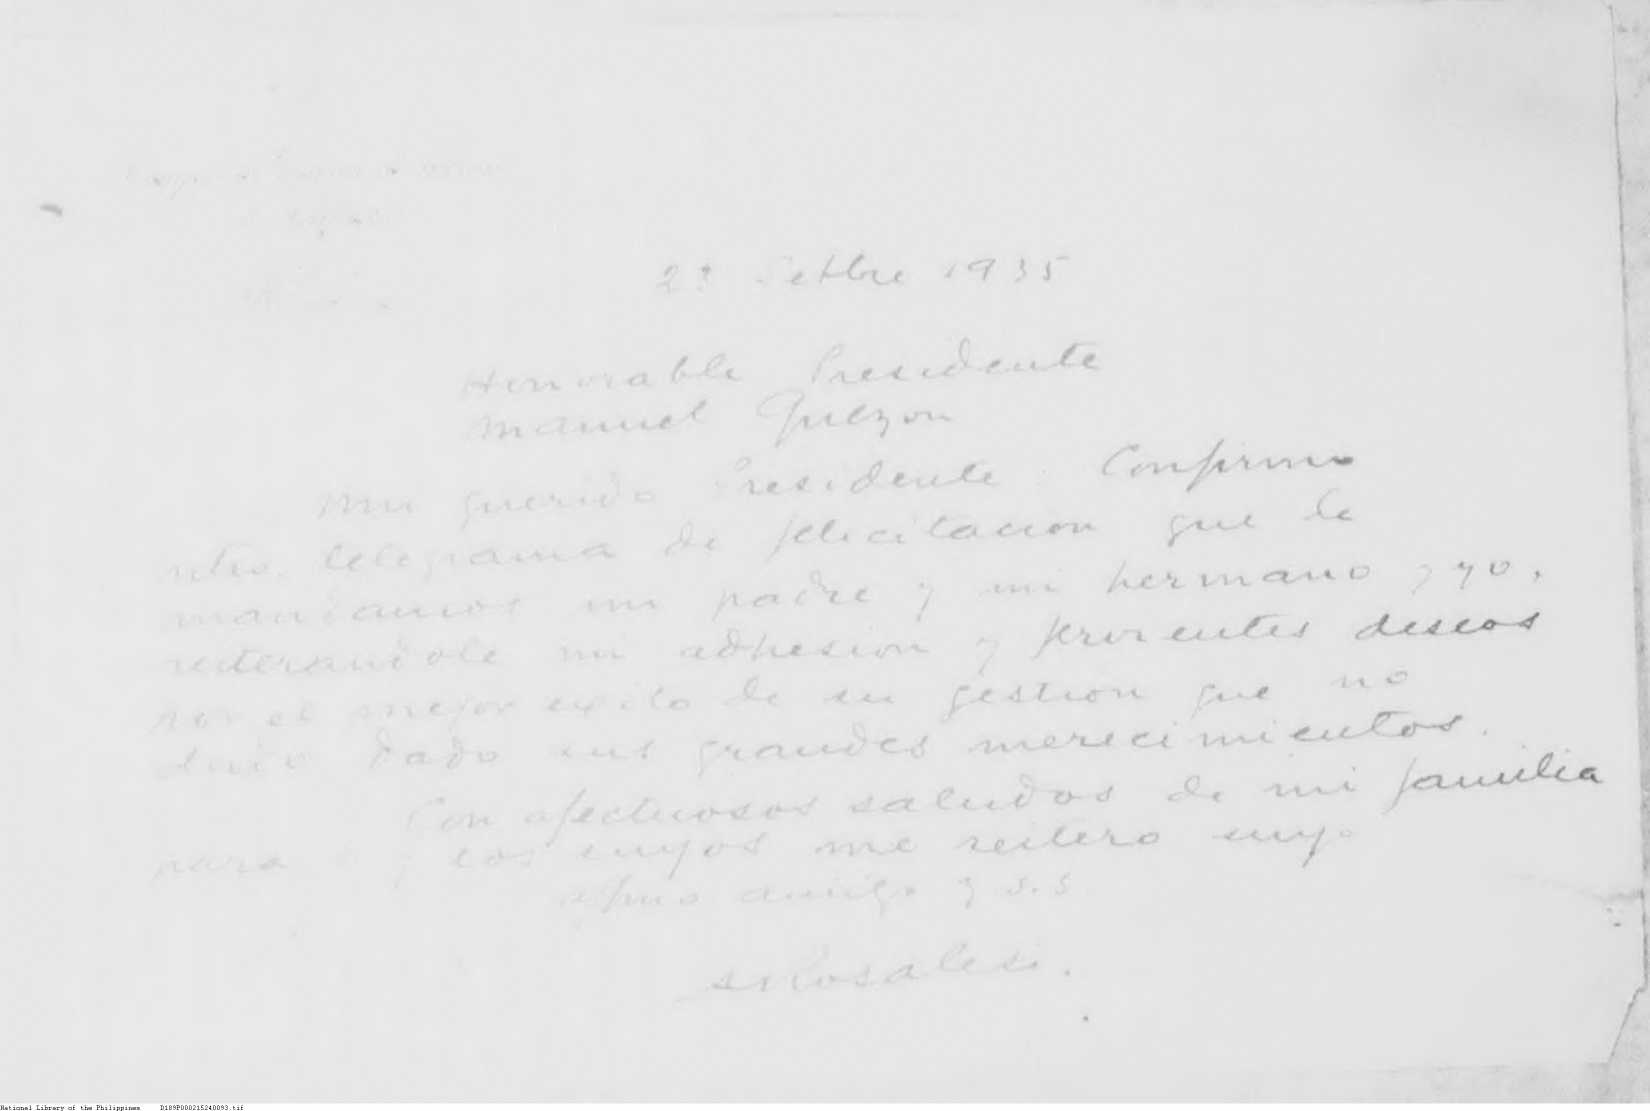 23 Setbre 1935
Honorable Presidente
Manuel Quezon
Mi querido Presidente: Confirmo
ntro. telegrama de felicitacion que le
mandamos mi padre y mi hermano y yo,
reiterandole mi adhesion y fervientes deseos
por el mejor exito de su gestion que no
dudo dado sus grandes merecimientos.
Con afectuosos saludos de mi familia
para y los suyos me reitero suyo
afmo amigo y s.s
Rosales.
National Library of the Philippines D189P000215240093.tif